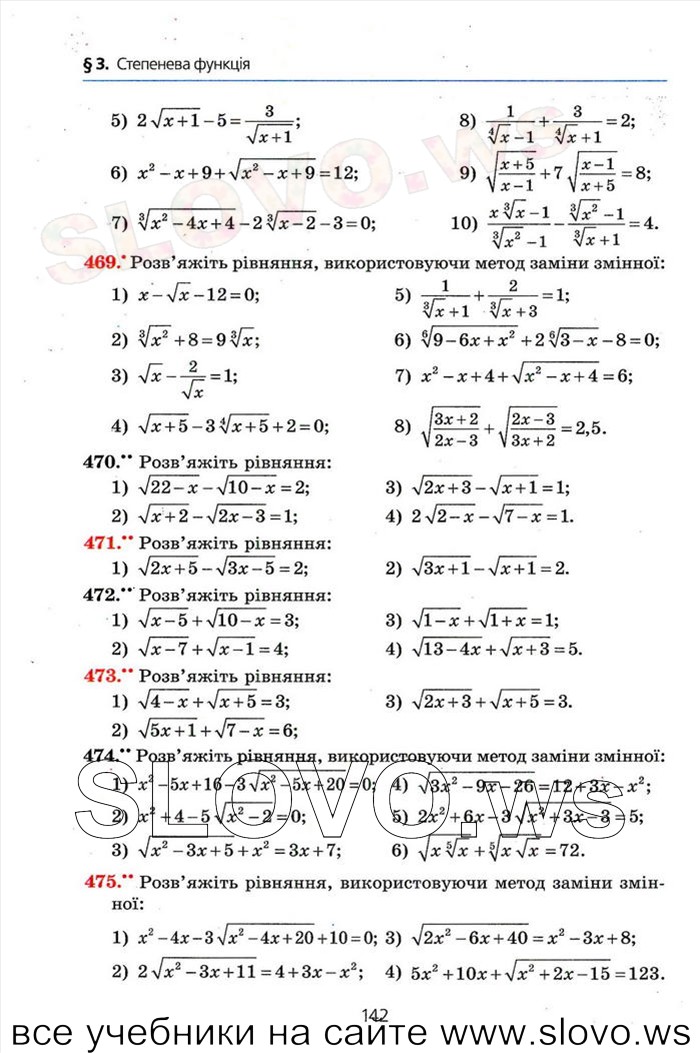 § 3. Степенева функція
5) 2√(x+1) − 5 = 3/√(x+1); 8) 1/(∜x − 1) + 3/(∜x + 1) = 2;
6) x² − x + 9 + √(x² − x + 9) = 12; 9) √((x+5)/(x−1)) + 7√((x−1)/(x+5)) = 8;
7) ∛(x² − 4x + 4) − 2∛(x−2) − 3 = 0; 10) (x∛x − 1)/(∛x² − 1) − (∛x² − 1)/(∛x + 1) = 4.
469.• Розв’яжіть рівняння, використовуючи метод заміни змінної:
1) x − √x − 12 = 0; 5) 1/(∛x + 1) + 2/(∛x + 3) = 1;
2) ∛x² + 8 = 9∛x; 6) ⁶√(9 − 6x + x²) + 2⁶√(3−x) − 8 = 0;
3) √x − 2/√x = 1; 7) x² − x + 4 + √(x² − x + 4) = 6;
4) √(x+5) − 3∜(x+5) + 2 = 0; 8) √((3x+2)/(2x−3)) + √((2x−3)/(3x+2)) = 2,5.
470.•• Розв’яжіть рівняння:
1) √(22−x) − √(10−x) = 2; 3) √(2x+3) − √(x+1) = 1;
2) √(x+2) − √(2x−3) = 1; 4) 2√(2−x) − √(7−x) = 1.
471.•• Розв’яжіть рівняння:
1) √(2x+5) − √(3x−5) = 2; 2) √(3x+1) − √(x+1) = 2.
472.•• Розв’яжіть рівняння:
1) √(x−5) + √(10−x) = 3; 3) √(1−x) + √(1+x) = 1;
2) √(x−7) + √(x−1) = 4; 4) √(13−4x) + √(x+3) = 5.
473.•• Розв’яжіть рівняння:
1) √(4−x) + √(x+5) = 3; 3) √(2x+3) + √(x+5) = 3.
2) √(5x+1) + √(7−x) = 6;
474.•• Розв’яжіть рівняння, використовуючи метод заміни змінної:
1) x² − 5x + 16 − 3√(x² − 5x + 20) = 0; 4) √(3x² − 9x − 26) = 12 + 3x − x²;
2) x² + 4 − 5√(x² − 2) = 0; 5) 2x² + 6x − 3√(x² + 3x − 3) = 5;
3) √(x² − 3x + 5) + x² = 3x + 7; 6) √(x⁵√x) + ⁵√(x√x) = 72.
475.•• Розв’яжіть рівняння, використовуючи метод заміни змін-
ної:
1) x² − 4x − 3√(x² − 4x + 20) + 10 = 0; 3) √(2x² − 6x + 40) = x² − 3x + 8;
2) 2√(x² − 3x + 11) = 4 + 3x − x²; 4) 5x² + 10x + √(x² + 2x − 15) = 123.
142
SLOVO.ws
SLOVO.ws
все учебники на сайте www.slovo.ws